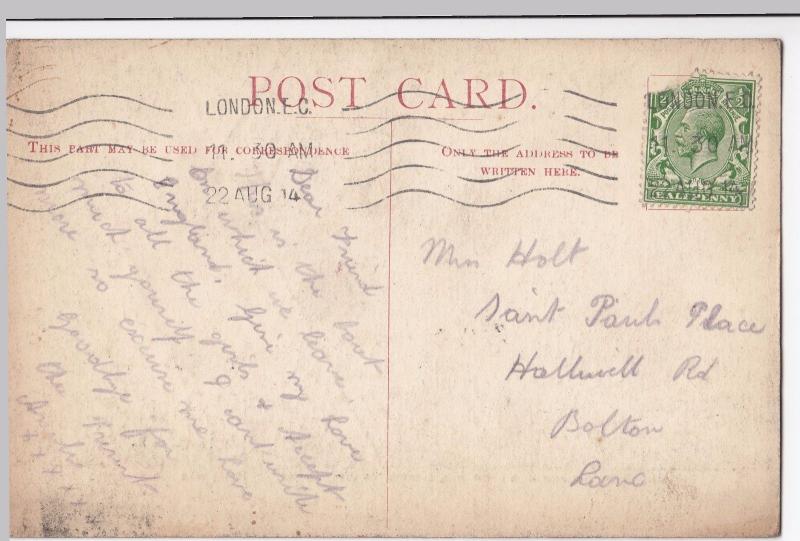 POST CARD.
LONDON.E.C.
11. 30 AM
22 AUG 14
THIS PART MAY BE USED FOR CORRESPONDENCE
ONLY THE ADDRESS TO BE
WRITTEN HERE.
LONDON.E.C.
30 AM
HALFPENNY
Dear Friend
this is the boat
on which we leave
England. Give my love
to all the girls & Accept
much yourself I cant write
more so excuse me love
Goodbye for
the
x x x x x
Miss Holt
Saint Pauls Place
Halliwell Rd
Bolton
Lanc